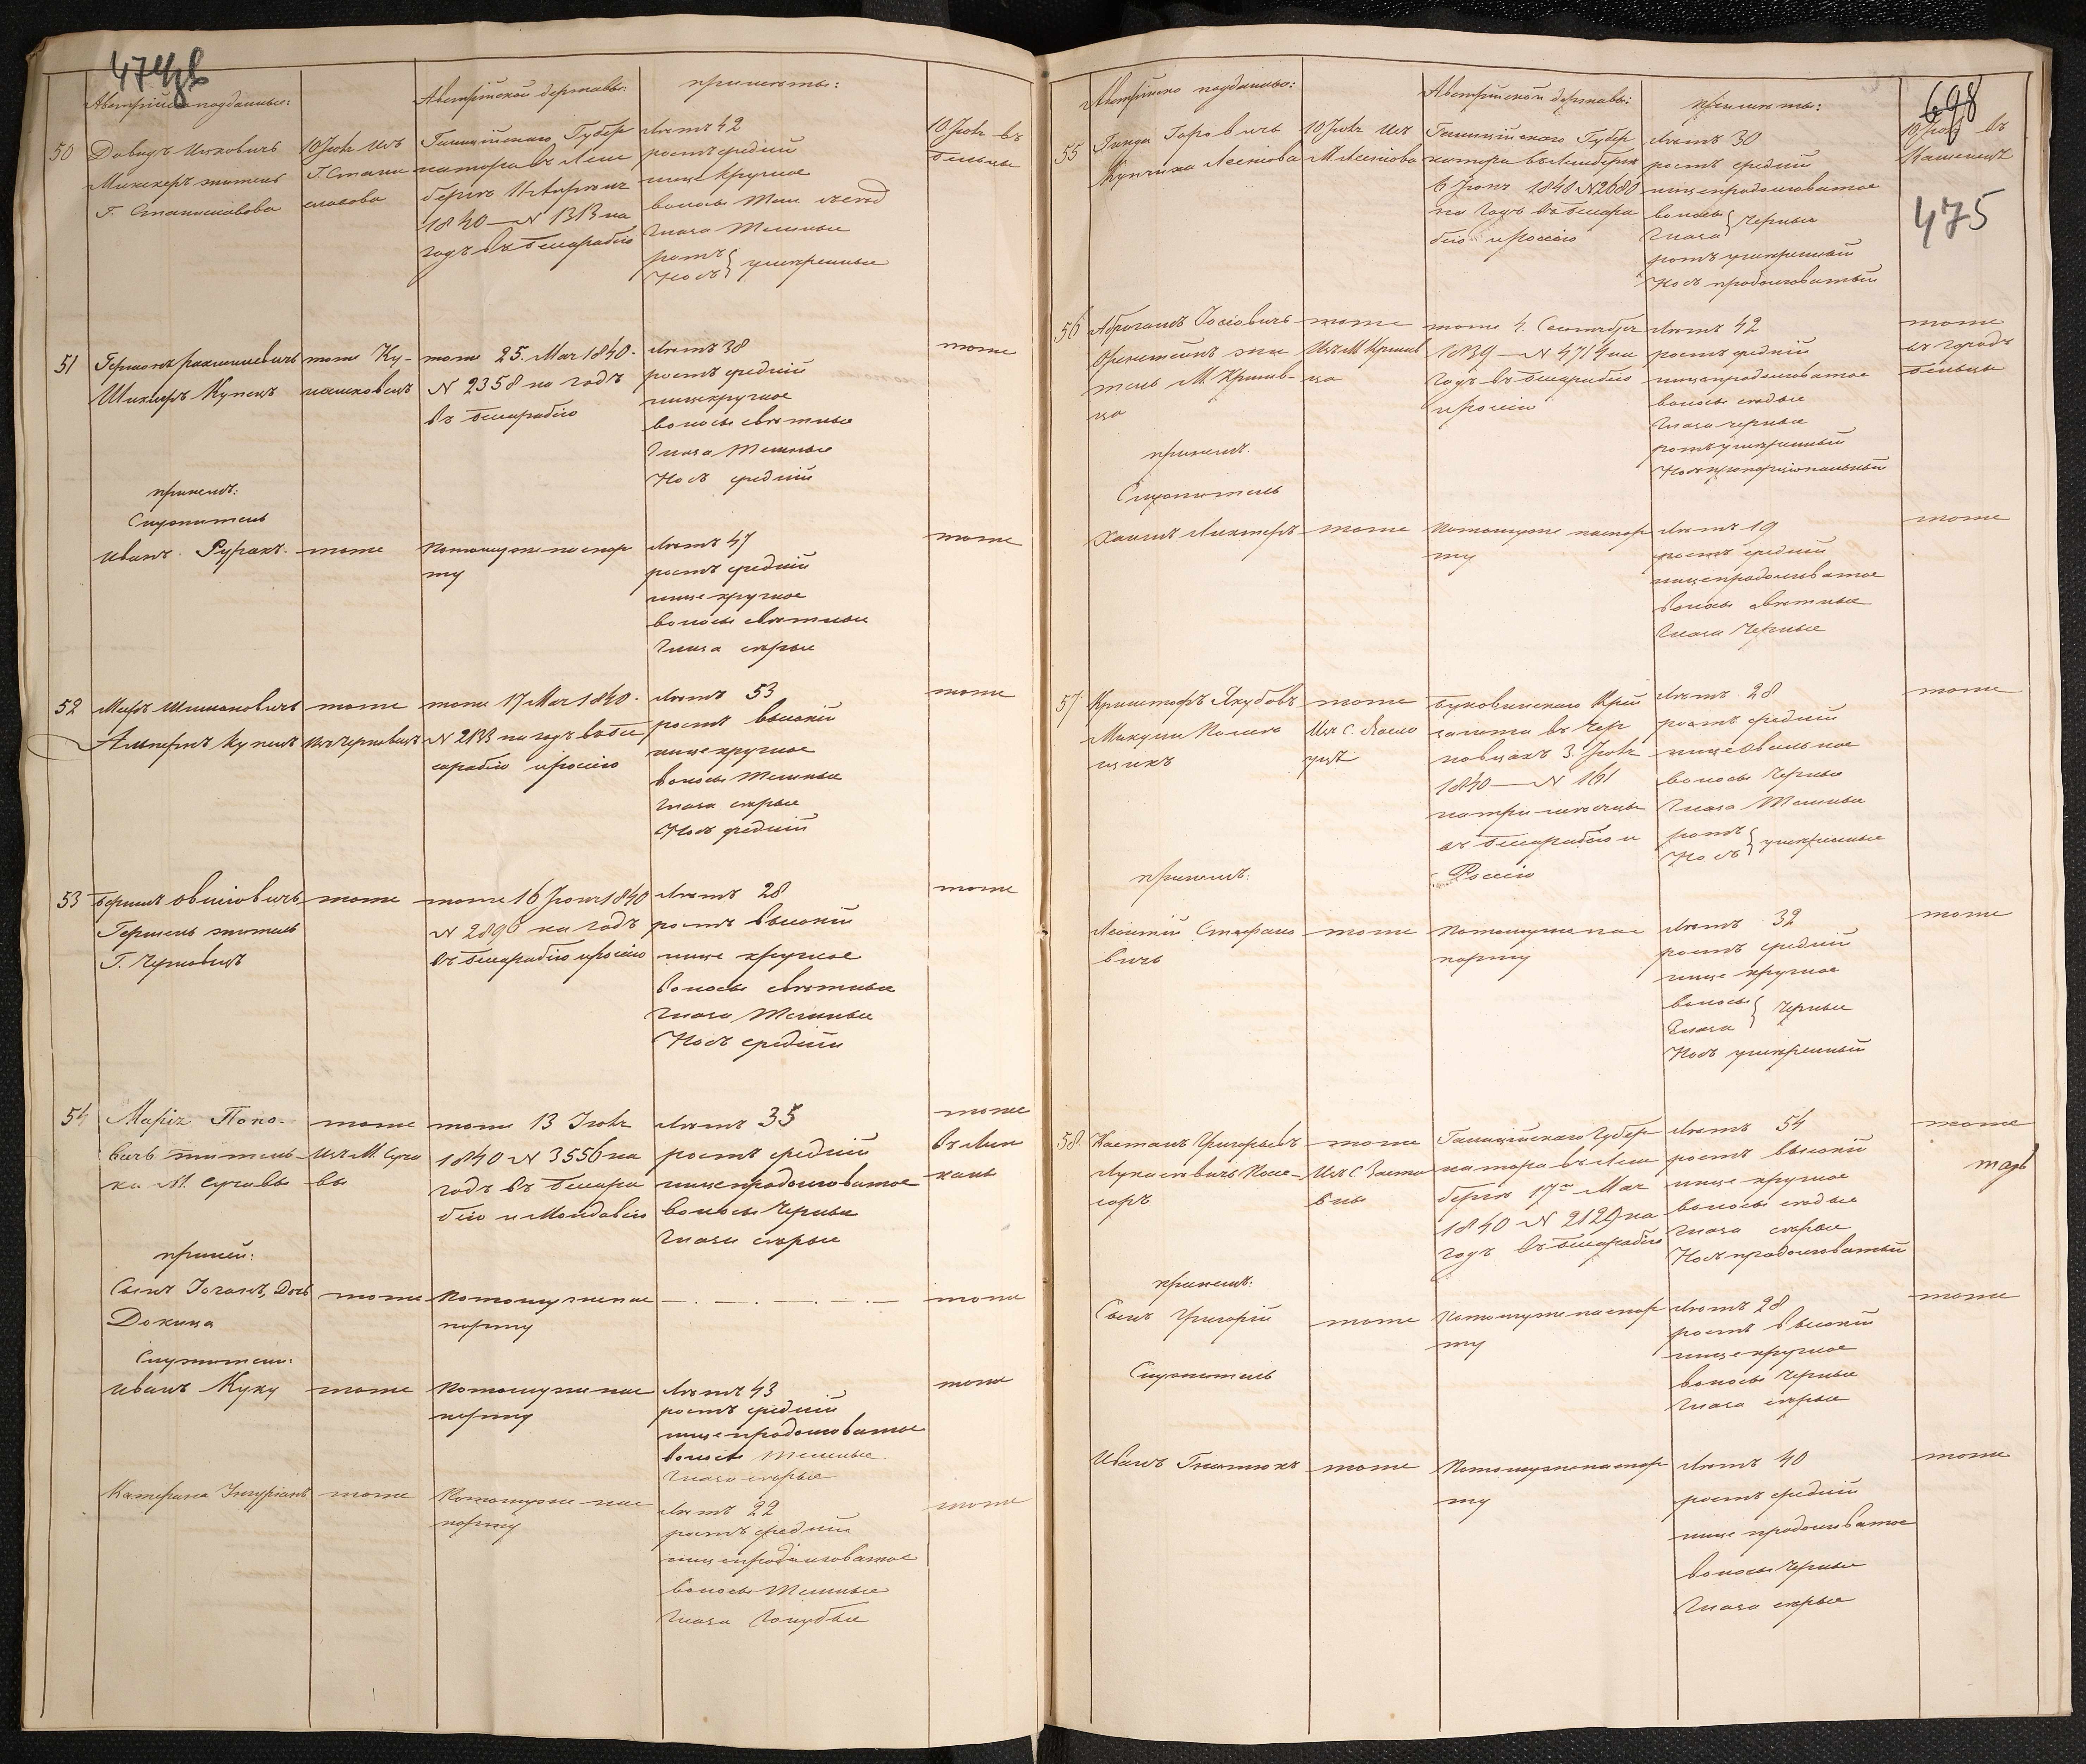 474
Австрійско подданные:
Австрійской державы:
примѣты:
50
Давидъ Ицковичъ
житель
Г. Станиславова
10 Іюля изъ
Г. Стани
славова
Галиційскаго Губер
натора въ Лем
бергѣ 11 Апрѣля
1840 — N 1313 на
годъ въ Бессарабію
Лѣтъ 42
ростъ средній
лице круглое
волосы
глаза темные
ротъ
носъ } умѣренные
10 Іюля въ
Бельцы
51
Купецъ
тоже
тоже 25. Мая 1840.
N 2358 на годъ
въ Бессарабію
Лѣтъ 38
ростъ средній
лице круглое
волосы свѣтлые
глаза темные
Носъ средній
тоже
при немъ:
Служитель
Иванъ
тоже
по томуже паспор
ту
Лѣтъ 47
ростъ средній
лице круглое
волосы свѣтлые
глаза сѣрые
тоже
52
Шимановичъ
Альперъ купецъ
тоже
изъ Черновецъ
тоже 17 Мая 1840.
N 2133 на годъ въ Бес
сарабію и Россію
Лѣтъ 53
ростъ высокій
лице круглое
волосы темные
глаза сѣрые
Носъ средній
тоже
53
Гершель житель
Г. Черновецъ
тоже
тоже 16 Іюня 1840
N 2896 на годъ
въ Бессарабію и Россію
Лѣтъ 28
ростъ высокій
лице круглое
волосы свѣтлые
глаза темные
Носъ средній
тоже
54
Марія Попо-
вичъ житель-
ка М. Сучавы
тоже
изъ М. Суча
вы
тоже 13 Іюля
1840 N 3556 на
годъ въ Бессара
бію и Молдавію
Лѣтъ 35
ростъ средній
лице продолговатое
волосы черные
глаза сѣрые
тоже
въ Лип
каны
при ней:
Сынъ Іоганъ, Дочь
Докица
тоже
по томуже пас
порту
тоже
Служители:
Иванъ Куку
тоже
по томуже пас
порту
Лѣтъ 43
ростъ средній
лице продолговатое
волосы темные
глаза сѣрые
тоже
Катерина
тоже
по томуже пас
порту
Лѣтъ 22
ростъ средній
лице продолговатое
волосы темные
глаза голубые
тоже
Австрійско подданые:
Австрійской державы:
примѣты:
698
475
55
Горовичъ
Купчиха
10 Іюля изъ
Галиційскаго Губер
натора въ Лембергѣ
6 Іюня 1840 N 2680
на годъ въ Бессара
бію и Россію
Лѣтъ 30
ростъ средній
лице продолговатое
волосы
глаза } черные
ротъ умѣренный
Носъ продолговатый
10 Іюля въ
Каменецъ
56
Абрагамъ Іосіовичъ
жи
тель М. Кривв-
ца
тоже
изъ М. Кривв
ца
тоже 4. Сентября
1839 — N 4714 на
годъ въ Бессарабію
и Россію
Лѣтъ 42
ростъ средній
лице продолговатое
волосы сѣдые
глаза черные
ротъ умѣренный
Носъ пропорціональный
тоже
въ городъ
Бельцы
при немъ.
Служитель
Хаимъ
тоже
по томуже паспор
ту
Лѣтъ 19
ростъ средній
лице продолговатое
волосы свѣтлые
глаза черные
тоже
57
Криштофъ Якубовъ
тоже
изъ С.
Буковинскаго Крей
самта въ Чер
новцахъ 3. Іюля
1840 — N 161
на три мѣсяцы
въ Бессарабію и
Россію
Лѣтъ 28
ростъ средній
лице овальное
волосы черные
глаза темные
ротъ
Носъ } умѣренные
тоже
при немъ:
Леонтій Стефано
вичъ
тоже
по томуже пас
порту
Лѣтъ 32
ростъ средній
лице круглое
волосы
глаза } черные
Носъ умѣренный
тоже
58
Каетанъ Григорьевъ
тоже
Галиційскаго Губер
натора въ Лем
бергѣ 17го Мая
1840 N 2129 на
годъ въ Бессарабію
Лѣтъ 54
ростъ высокій
лице круглое
волосы сѣдые
глаза сѣрые
Носъ продолговатый
тоже
при немъ:
Сынъ Григорій
тоже
по томуже паспор
ту
Лѣтъ 28
ростъ высокій
лице круглое
волосы черные
глаза сѣрые
тоже
Служитель
Иванъ Гнатюкъ
тоже
по томуже паспор
ту
Лѣтъ 40
ростъ средній
лице продолговатое
волосы черные
глаза сѣрые
тоже